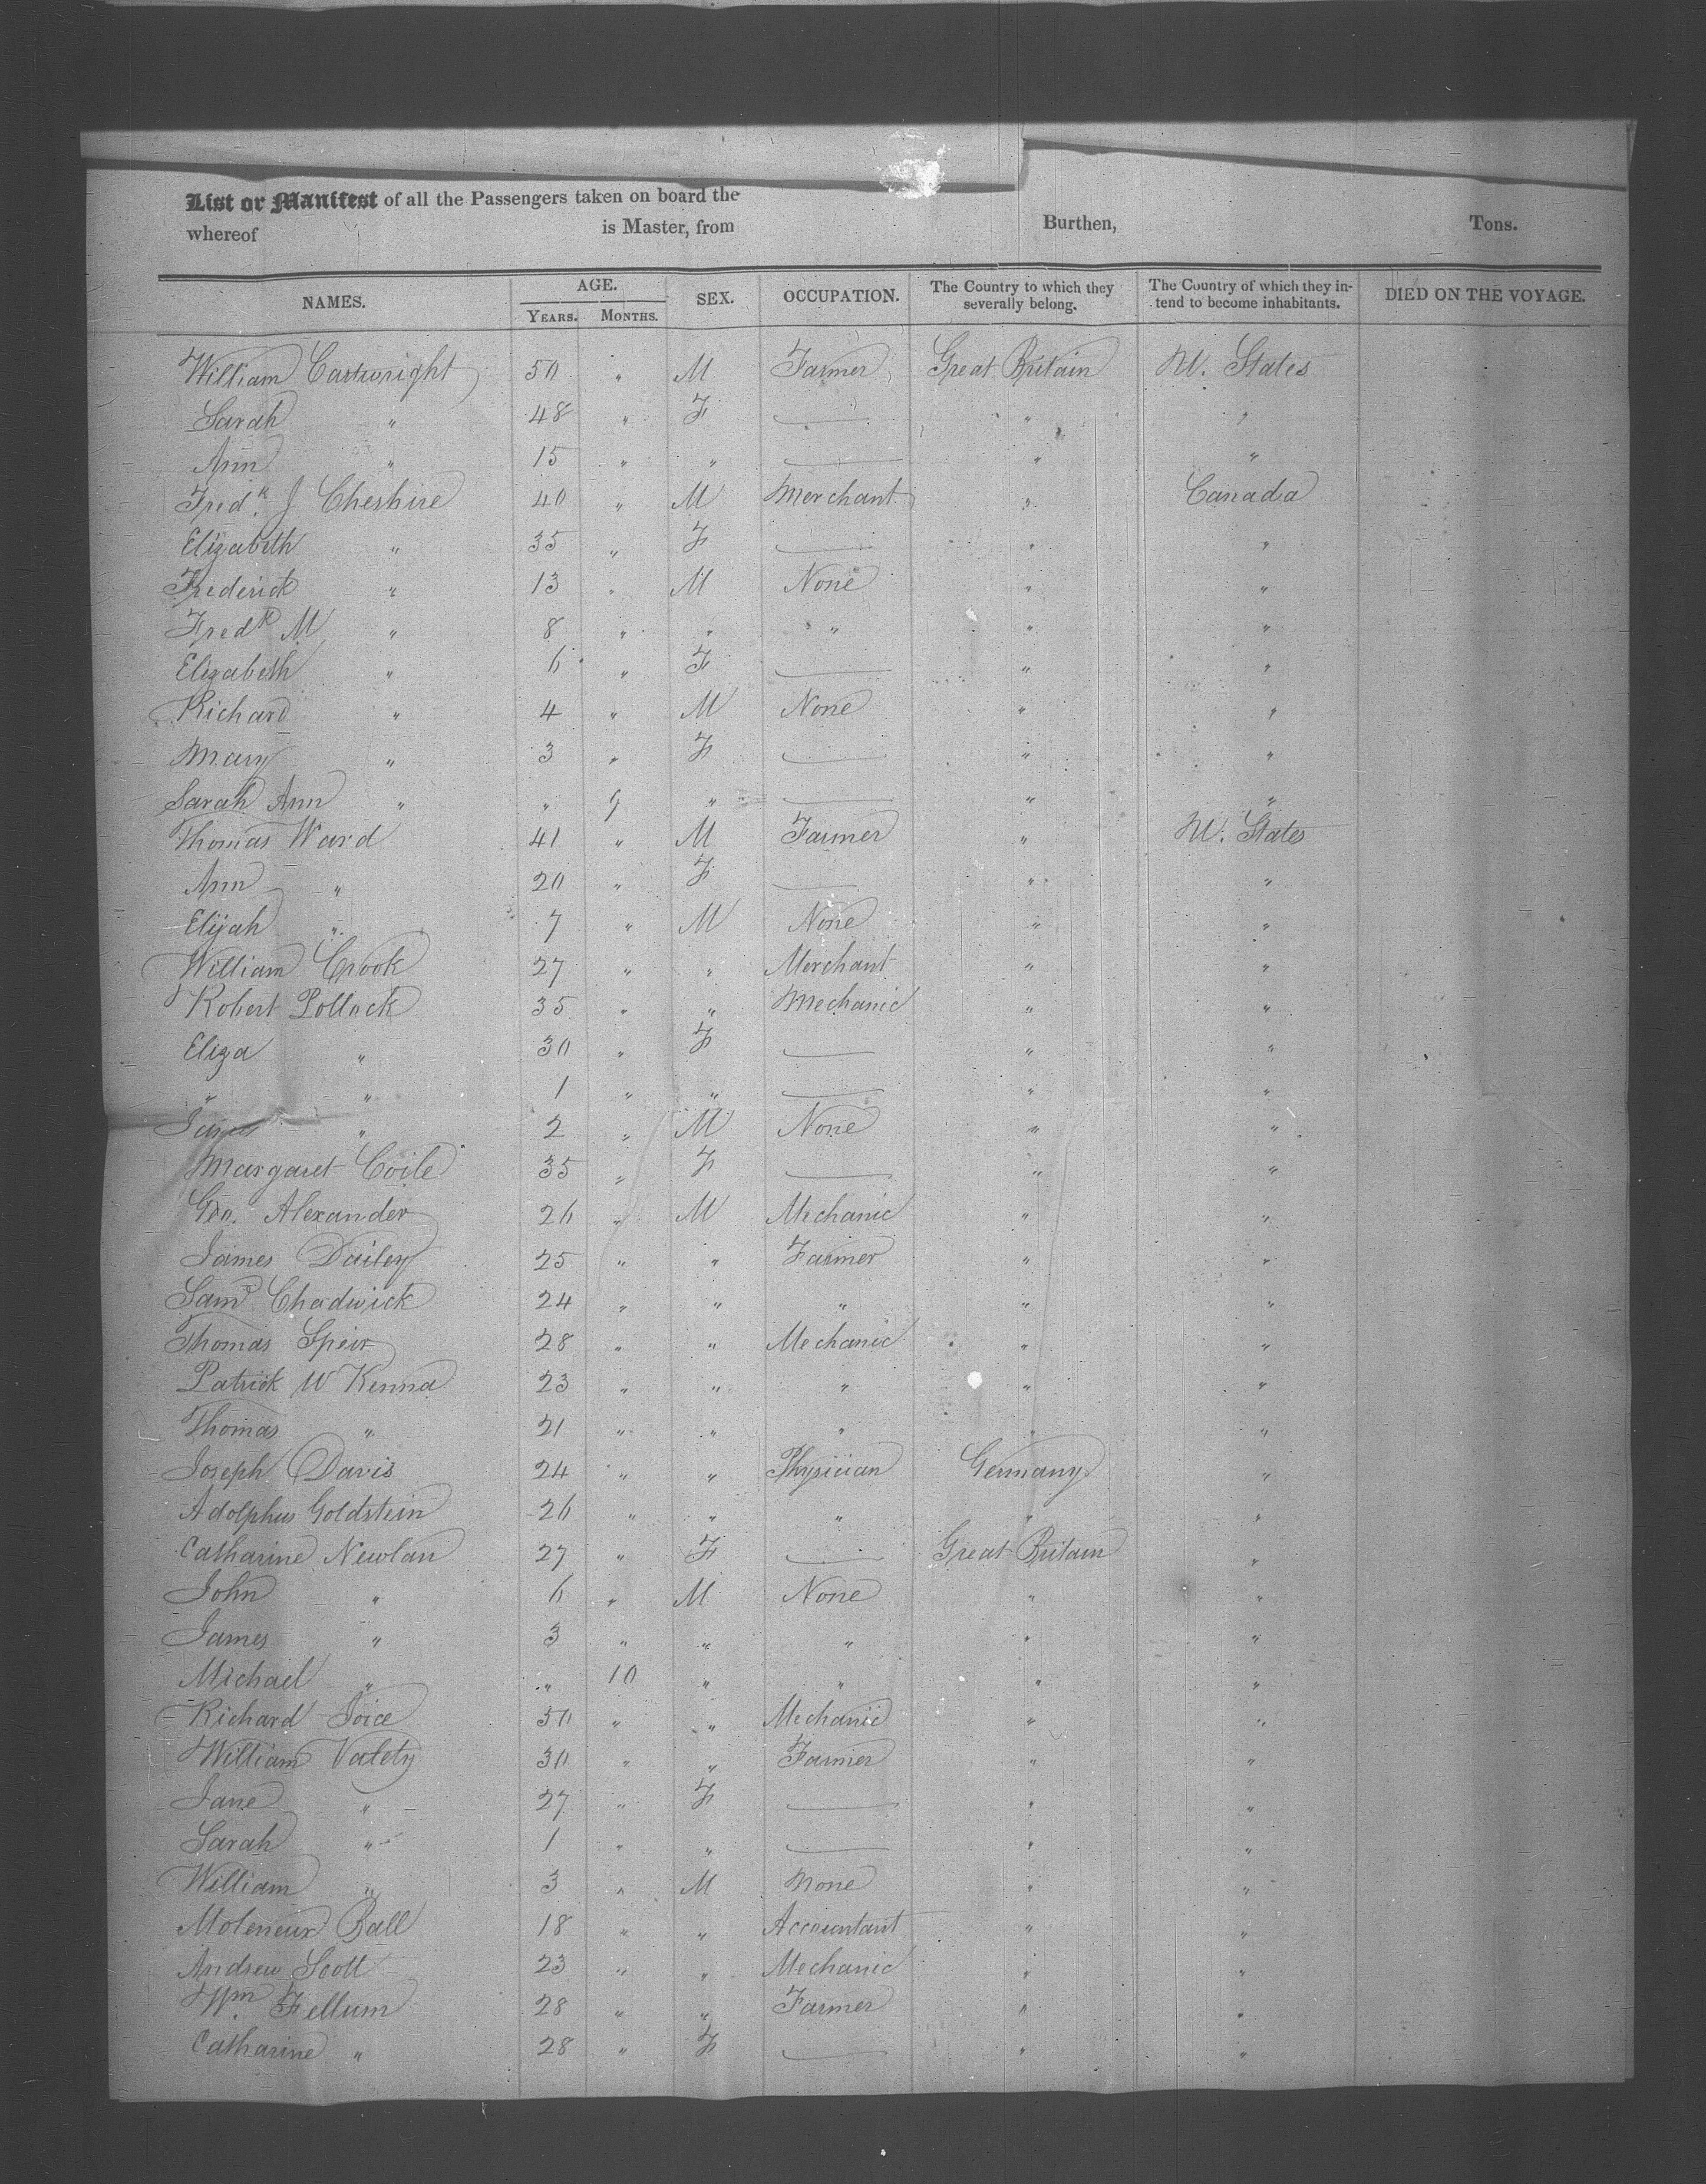 List or Manifest of all the Passengers taken on board the
whereof is Master, from Burthen, Tons.
NAMES. AGE. YEARS. MONTHS. SEX. OCCUPATION. The Country to which they severally belong. The Country of which they intend to become inhabitants. DIED ON THE VOYAGE.
William Cartwright 50 " M Farmer Great Britain U. States
Sarah " 48 " F — " "
Ann " 15 " " — " "
Fredk. J Cheshire 40 " M Merchant " Canada
Elizabeth " 35 " F — " "
Frederick " 13 " M None " "
Fredk M " 8 " " " " "
Elizabeth " 6 " F — " "
Richard " 4 " M None " "
Mary " 3 " F — " "
Sarah Ann " " 9 " — " "
Thomas Ward 41 " M Farmer " U. States
Ann " 20 " F — " "
Elijah " 7 " M None " "
William Crook 27 " " Merchant " "
Robert Pollock 35 " " Mechanic " "
Eliza " 30 " F — " "
" " 1 " " — " "
James " 2 " M None " "
Margaret Coile 35 " F — " "
Geo. Alexander 26 " M Mechanic " "
James Dailey 25 " " Farmer " "
Saml Chadwick 24 " " " " "
Thomas Speir 28 " " Mechanic " "
Patrick M Kenna 23 " " " " "
Thomas " 21 " " " " "
Joseph Davis 24 " " Physician Germany "
Adolphus Goldstein 26 " " " " "
Catharine Newlan 27 " F — Great Britain "
John " 6 " M None " "
James " 3 " " " " "
Michael " " 10 " " " "
Richard Joice 30 " " Mechanic " "
William Valety 30 " " Farmer " "
Jane " 27 " F — " "
Sarah " 1 " " — " "
William " 3 " M None " "
Moleneux Ball 18 " " Accountant " "
Andrew Scott 23 " " Mechanic " "
Wm. Fellum 28 " " Farmer " "
Catharine " 28 " F — " "